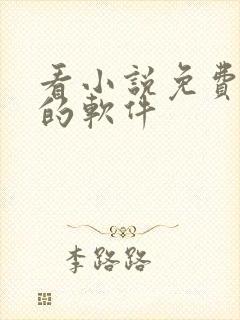 看小說免費
的軟件
李路路